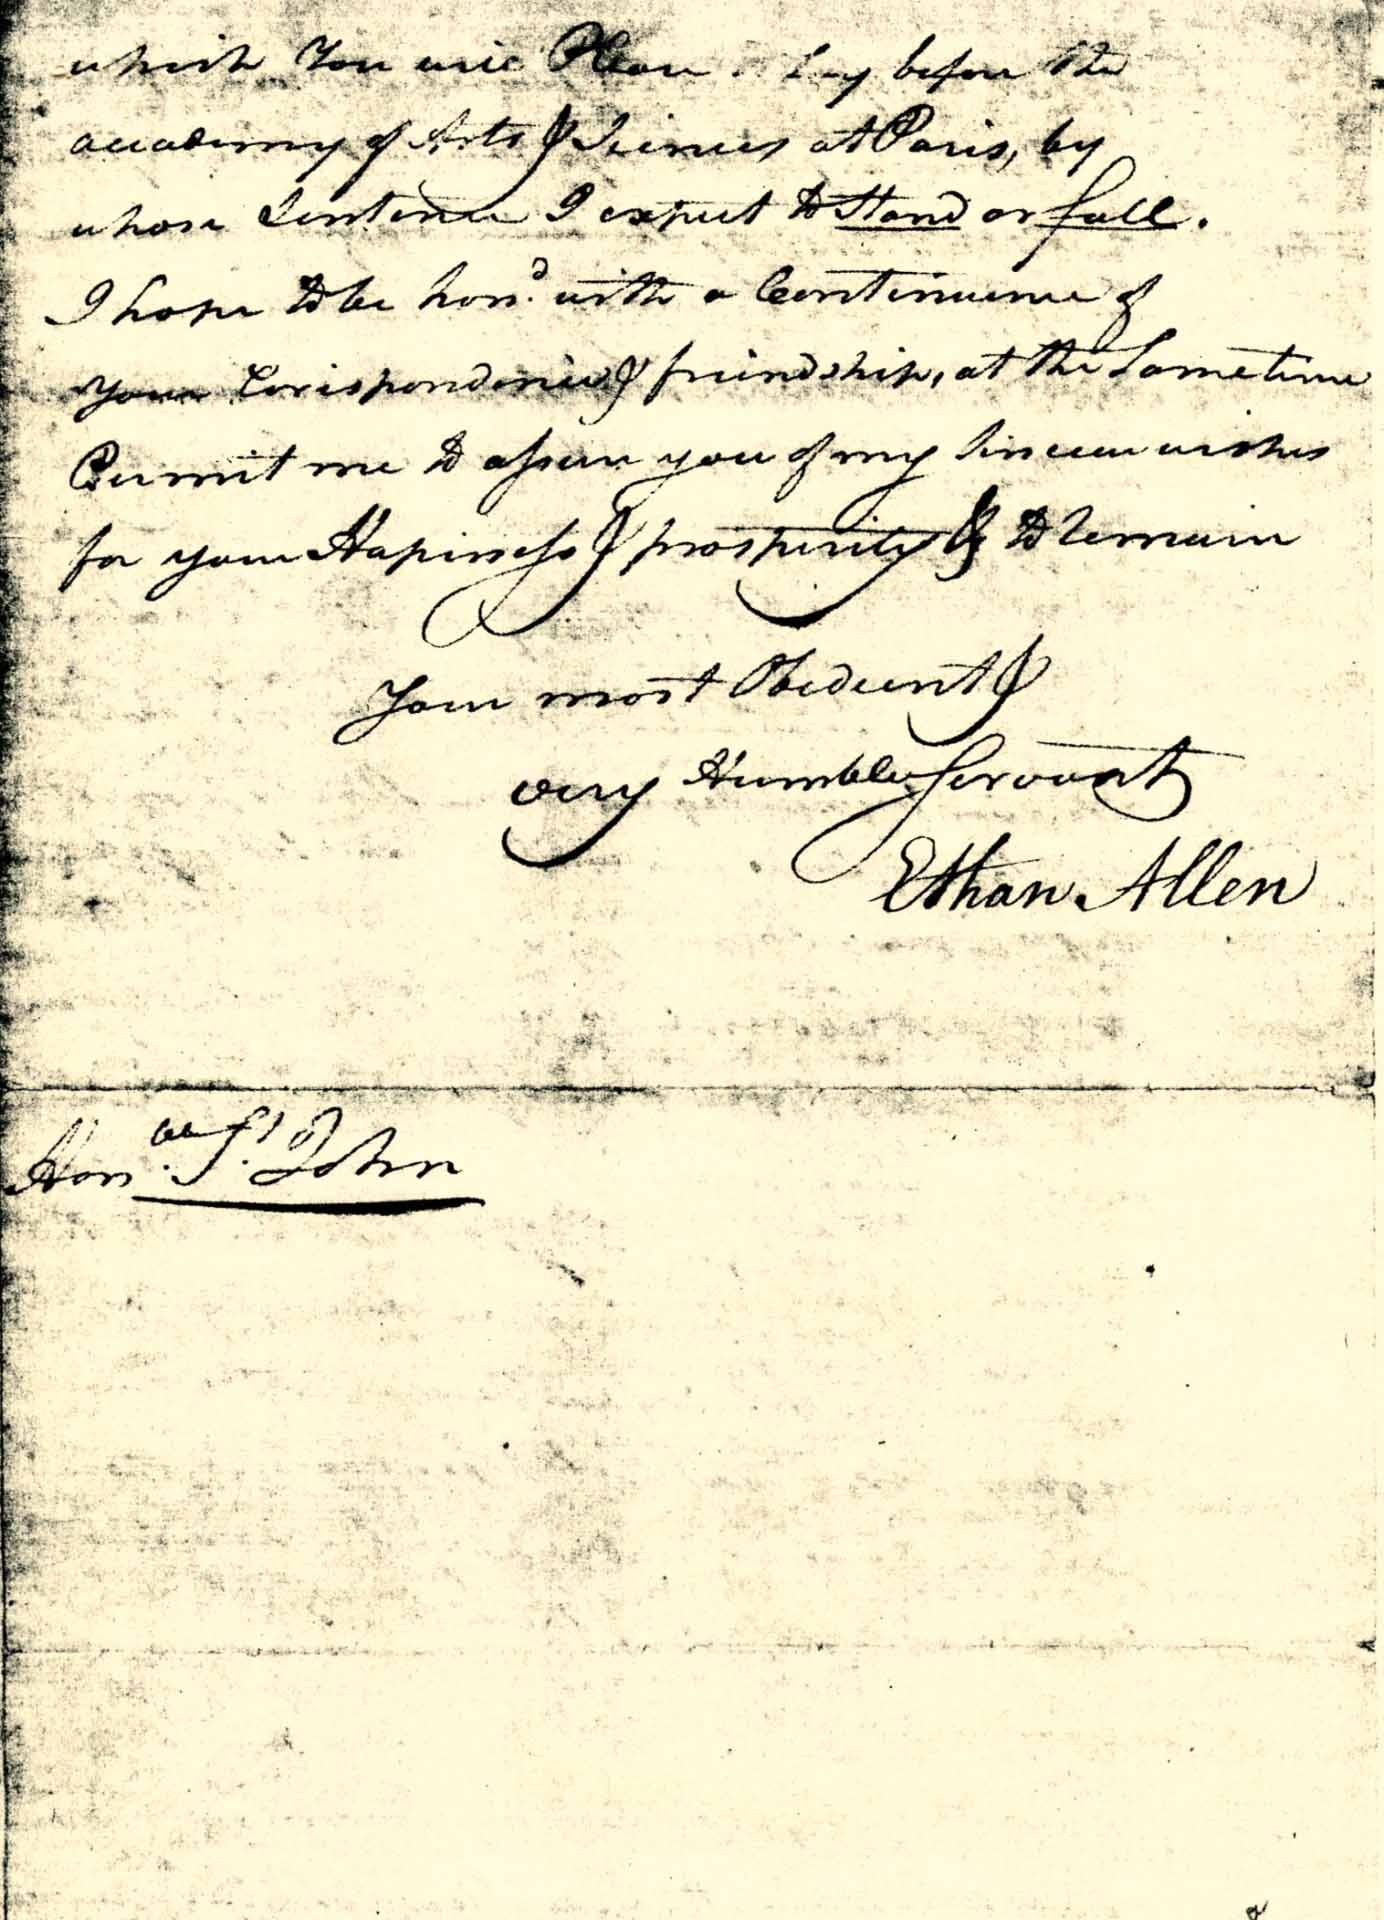 which You will Pleas Lay before the
academy of Arts & Sciences at Paris, by
whose Sentence I expect to Stand or fall.
I hope to be hon.d with a Continuence of
your Corispondence & friendship, at the Sametime
Permit me to assure you of my Sincere wishes
for your Hapiness & prosperity & to Remain
Your most Obedient &
very Humble Servant
Ethan Allen
Hon.ble St. John